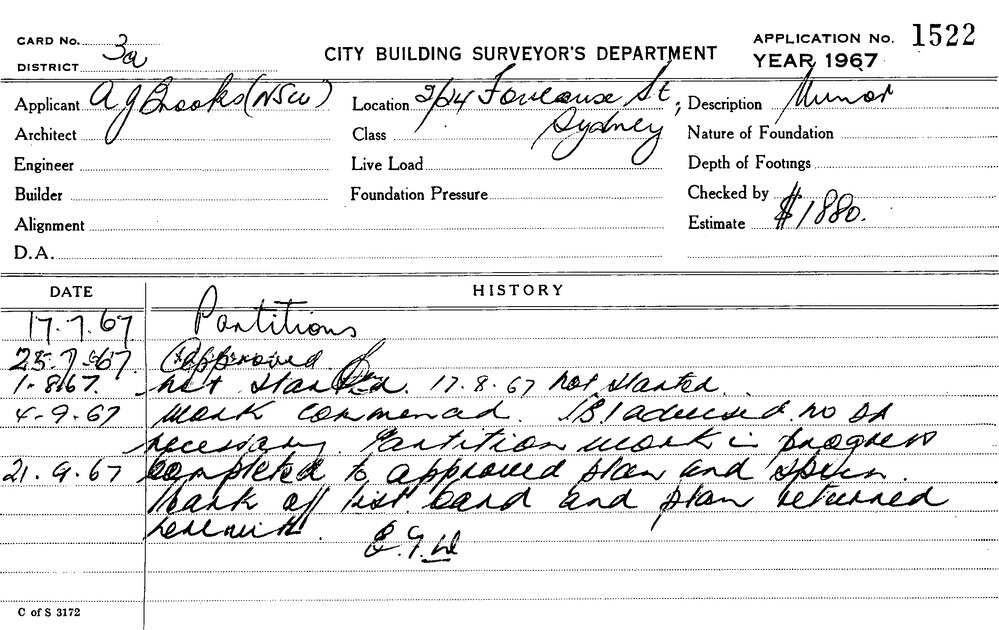 CARD No. 3a
DISTRICT
CITY BUILDING SURVEYOR'S DEPARTMENT
APPLICATION No. 1522
YEAR 1967
Applicant A J Brooks (NSW)
Location 2/24 Sydney
Description Minor
Architect
Class
Nature of Foundation
Engineer
Live Load
Depth of Footings
Builder
Foundation Pressure
Checked by
Alignment
Estimate $1880.
D.A.
DATE HISTORY
17.7.67 Partitions
25.7.67 Approved
1.8.67. not started. 17.8.67 not started.
4-9-67 work commenced. advised no
necessary Partition work in progress
21.9.67 completed to approved plan and
mark off list card and plan returned
herewith. E.G.W
C of S 3172